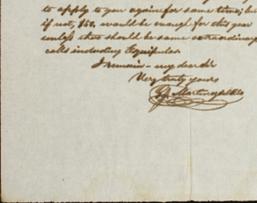 to apply to you again for some time; but
if not, $50. would be enough for this year
unless there should be some extraordinary
calls including
I remain - my dear Sir
Very truly yours
Martin